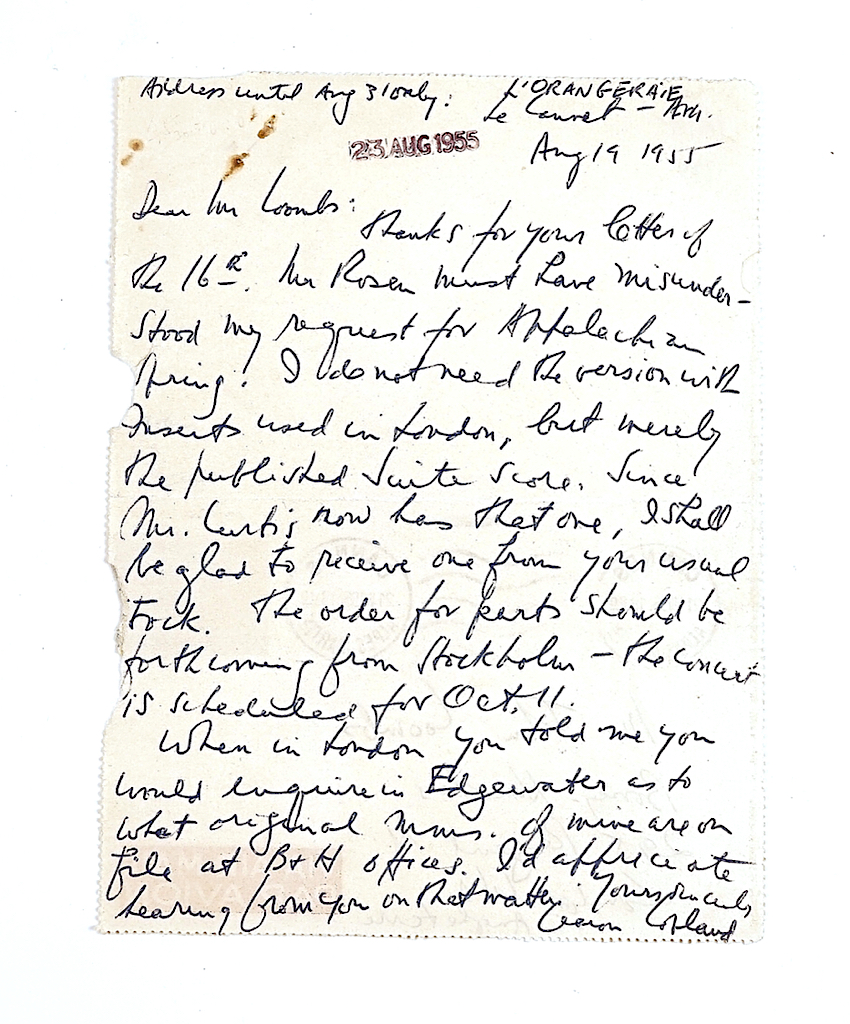 Address until Aug 31 only: L'ORANGERAIE
Le Cannet - AM.
23 AUG 1955
Aug 19 1955
Dear Mr Coombs:
Thanks for your letter of
the 16th. Mr Rosen must have misunder-
stood my request for Appalachian
Spring! I do not need the version with
inserts used in London, but merely
the published Suite score. Since
Mr. Curtis now has that one, I shall
be glad to receive one from your usual
stock. The order for parts should be
forthcoming from Stockholm – the concert
is scheduled for Oct. 11.
When in London you told me you
would enquire in Edgewater as to
what original mms. of mine are on
file at B+H offices. I'd appreciate
hearing from you on that matter. Yours sincerely
Aaron Copland